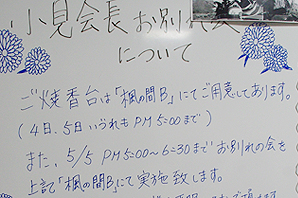 小見会長お別れ会
について
ご焼香台は「楓の間B」にてご用意してあります。
(4日、5日いづれもPM5:00まで)
また、5/5 PM5:00～6:30までお別れの会を
上記「楓の間B」にて実施致します。